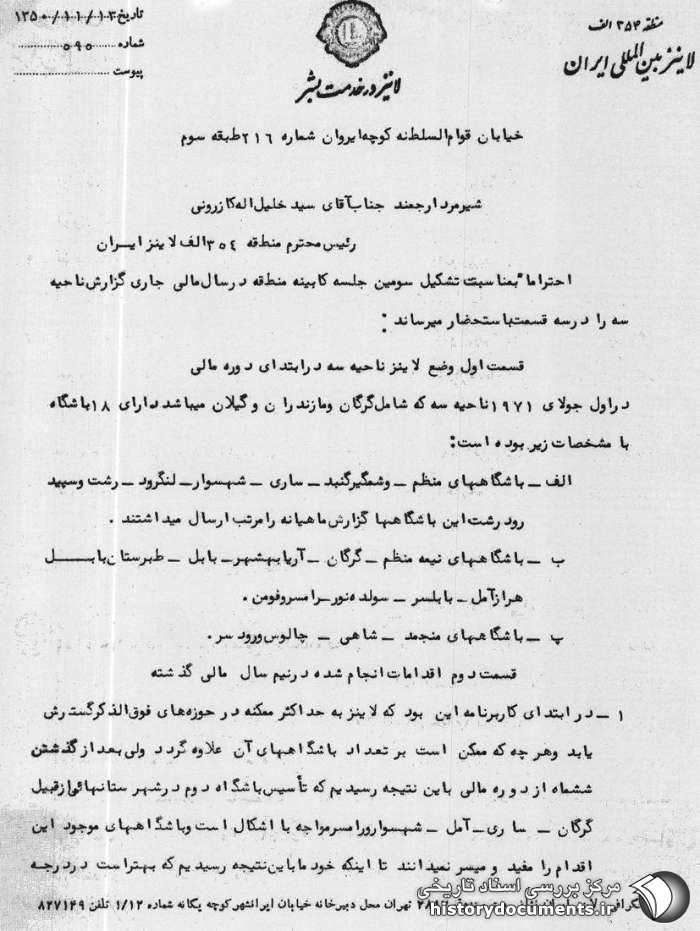 منطقه ۳۵۴ الف
لاینز بین المللی ایران
لاینز در خدمت بشر
تاریخ ۱۳۵۰/۱۱/۱۳
شماره ۵۹۵
پیوست
خیابان قوام السلطنه کوچه ایروان شماره ۲۱۶ طبقه سوم
شیرمرد ارجمند جناب آقای سید خلیل اله کازرونی
رئیس محترم منطقه ۳۵۴ الف لاینز ایران
احتراما" بمناسبت تشکیل سومین جلسه کابینه منطقه در سال مالی جاری گزارش ناحیه
سه را در سه قسمت باستحضار میرساند :
قسمت اول وضع لاینز ناحیه سه در ابتدای دوره مالی
در اول جولای ۱۹۷۱ ناحیه سه که شامل گرگان و مازندران و گیلان میباشد دارای ۱۸ باشگاه
با مشخصات زیر بوده است :
الف ـ باشگاههای منظم ـ وشمگیرگنبد ـ ساری ـ شهسوار ـ لنگرود ـ رشت و سپید
رود رشت این باشگاهها گزارش ماهیانه را مرتب ارسال میداشتند .
ب ـ باشگاههای نیمه منظم ـ گرگان ـ آریابهشهر ـ بابل ـ طبرستان بابل
هراز آمل ـ بابلسر ـ سولده نور ـ رامسر و فومن .
پ ـ باشگاههای منجمد ـ شاهی ـ چالوس و رودسر .
قسمت دوم اقدامات انجام شده در نیم سال مالی گذشته
۱ ـ در ابتدای کار برنامه این بود که لاینز به حداکثر ممکنه در حوزه های فوق الذکر گسترش
یابد و هرچه که ممکن است بر تعداد باشگاههای آن علاوه گردد ولی بعد از گذشتن
ششماه از دوره مالی باین نتیجه رسیدیم که تأسیس باشگاه دوم در شهرستانهائی از قبیل
گرگان ـ ساری ـ آمل ـ شهسوار و رامسر مواجه با اشکال است و باشگاههای موجود این
اقدام را مفید و میسر نمیدانند تا اینکه خود ما باین نتیجه رسیدیم که بهتر است در درجه
۲۸۸ تهران محل دبیرخانه خیابان ایرانشهر کوچه یگانه شماره ۱/۱۲ تلفن ۸۲۷۱۴۹
مرکز بررسی اسناد تاریخی
historydocuments.ir